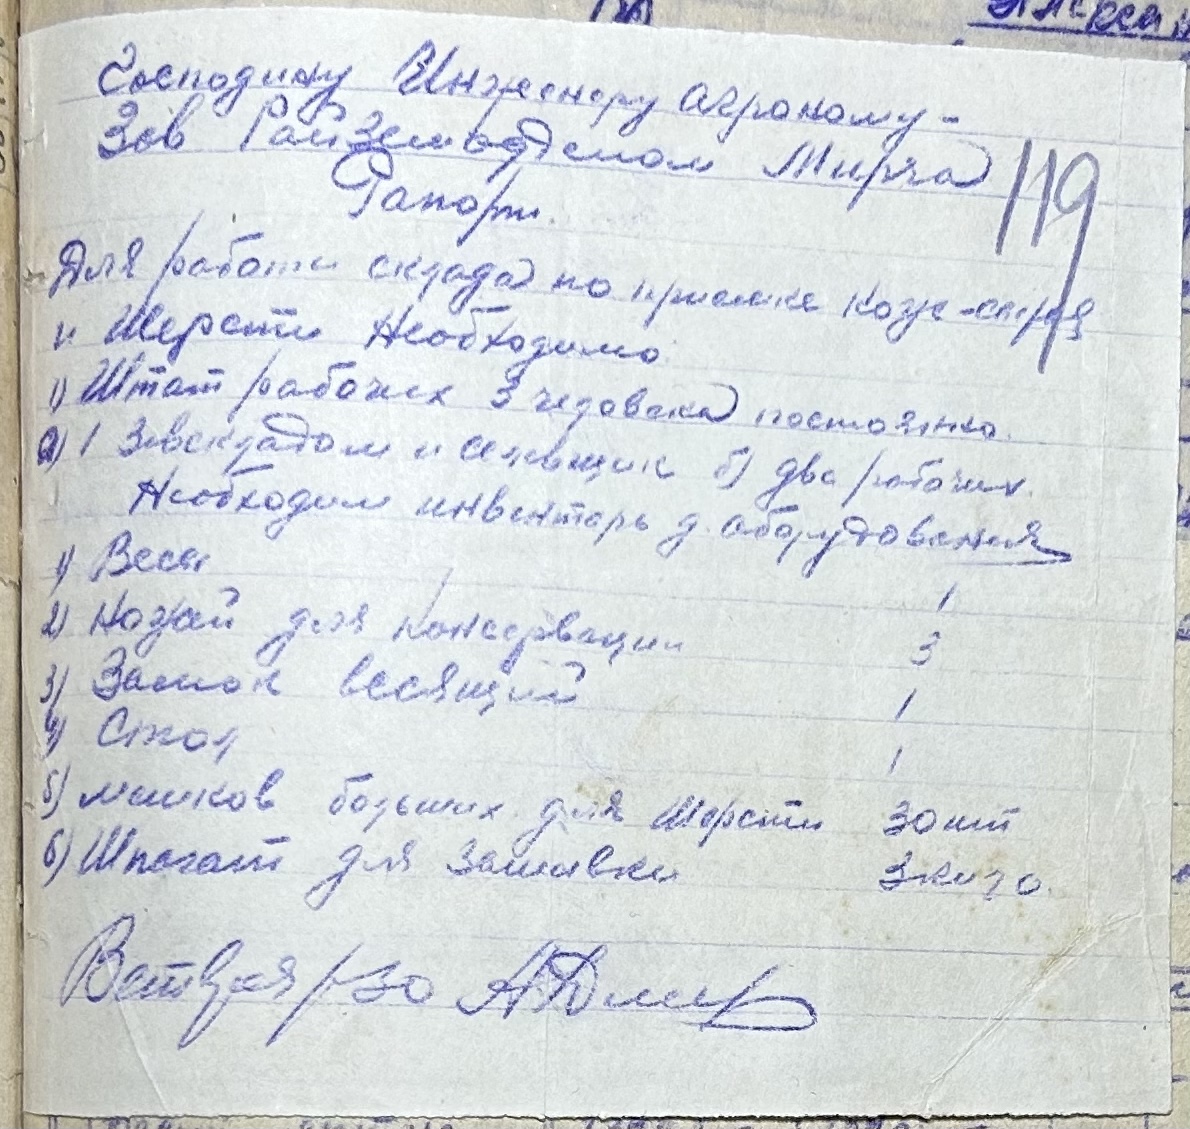 Господину Инженеру агроному -
Зав РайЗемотделом Мирча
119
Рапорт.
Для работы склада по приемке кож-сырья
и Шерсти Необходимо
1) Штат рабочих 3 человека постоянно.
а) 1 Завскладом и сольщик б) два рабочих.
Необходим инвентарь д. оборудования
1) Весы 1
2) Ножей для консервации 3
3) Замок весящий 1
4) Стол 1
5) мешков больших для Шерсти 30 шт
6) Шпагат для Зашивки 3 кило.